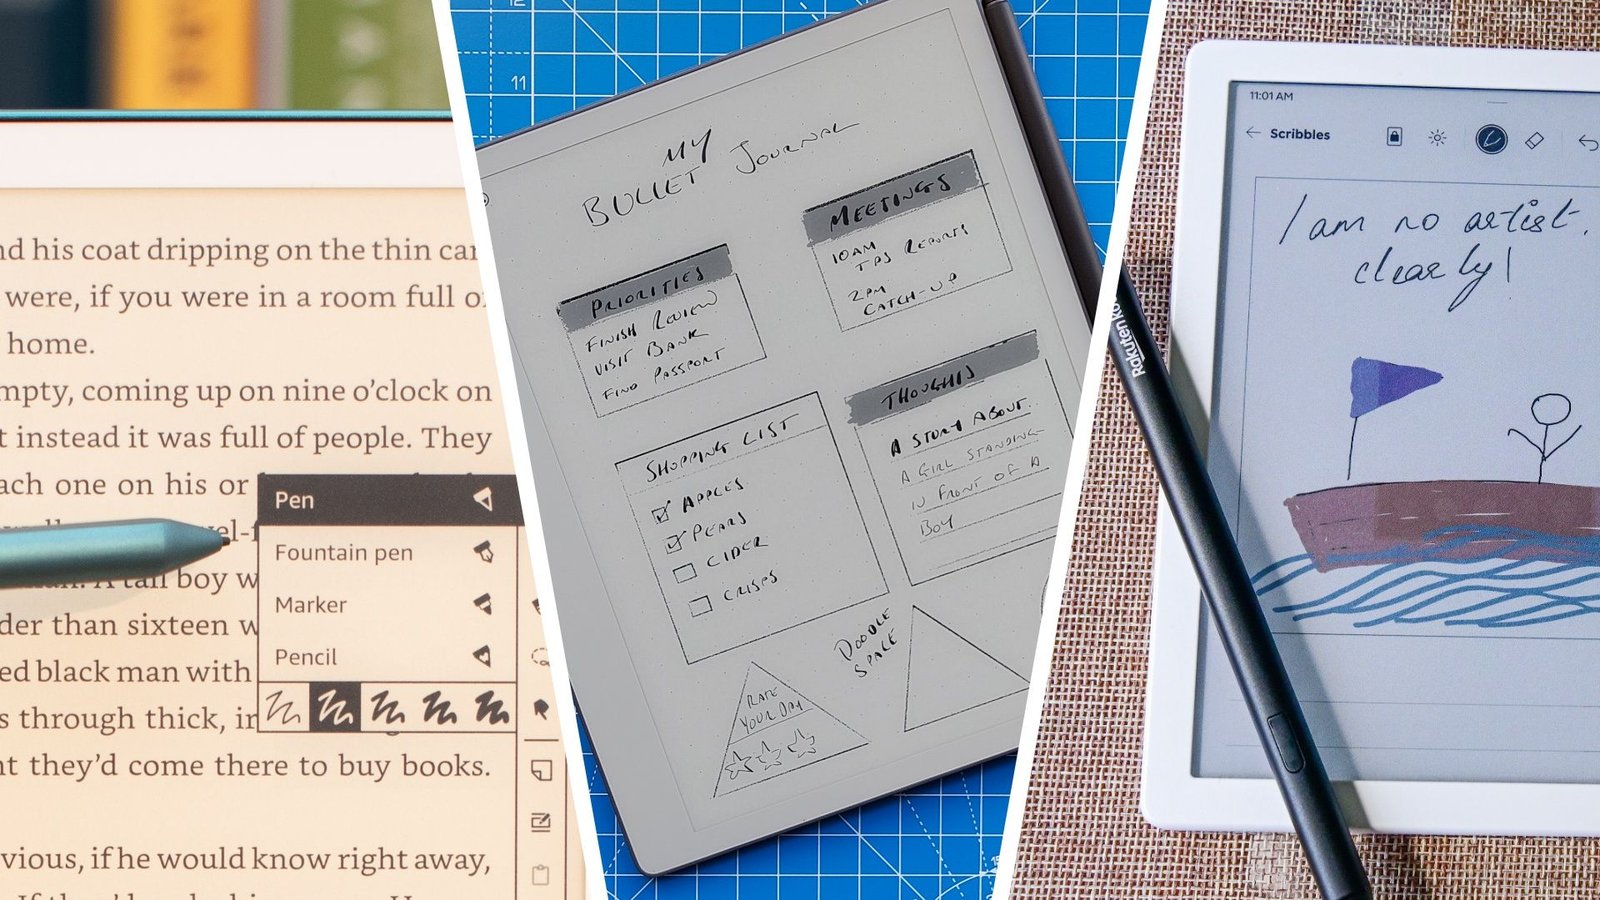 nd his coat dripping on the thin car
were, if you were in a room full o
home.
mpty, coming up on nine o'clock on
t instead it was full of people. They
ach one on his or
el-f
A tall boy w
der than sixteen w
ed black man with
s through thick, in
nt they'd come there to buy books.
vious, if he would know right away,
Pen
Fountain pen
Marker
Pencil
12
11
MY
BULLET JOURNAL
PRIORITIES
FINISH REVIEW
VISIT BANK
FIND PASSPORT
MEETINGS
10AM
TPS REPORTS
2PM
CATCH-UP
SHOPPING LIST
APPLES
PEARS
CIDER
CRISPS
THOUGHTS
A STORY ABOUT
A GIRL STANDING
IN FRONT OF A
BOY
DOODLE
SPACE
RATE
YOUR DAY
15
11:01 AM
Scribbles
I am no artist.
clearly!
Rakuten ko